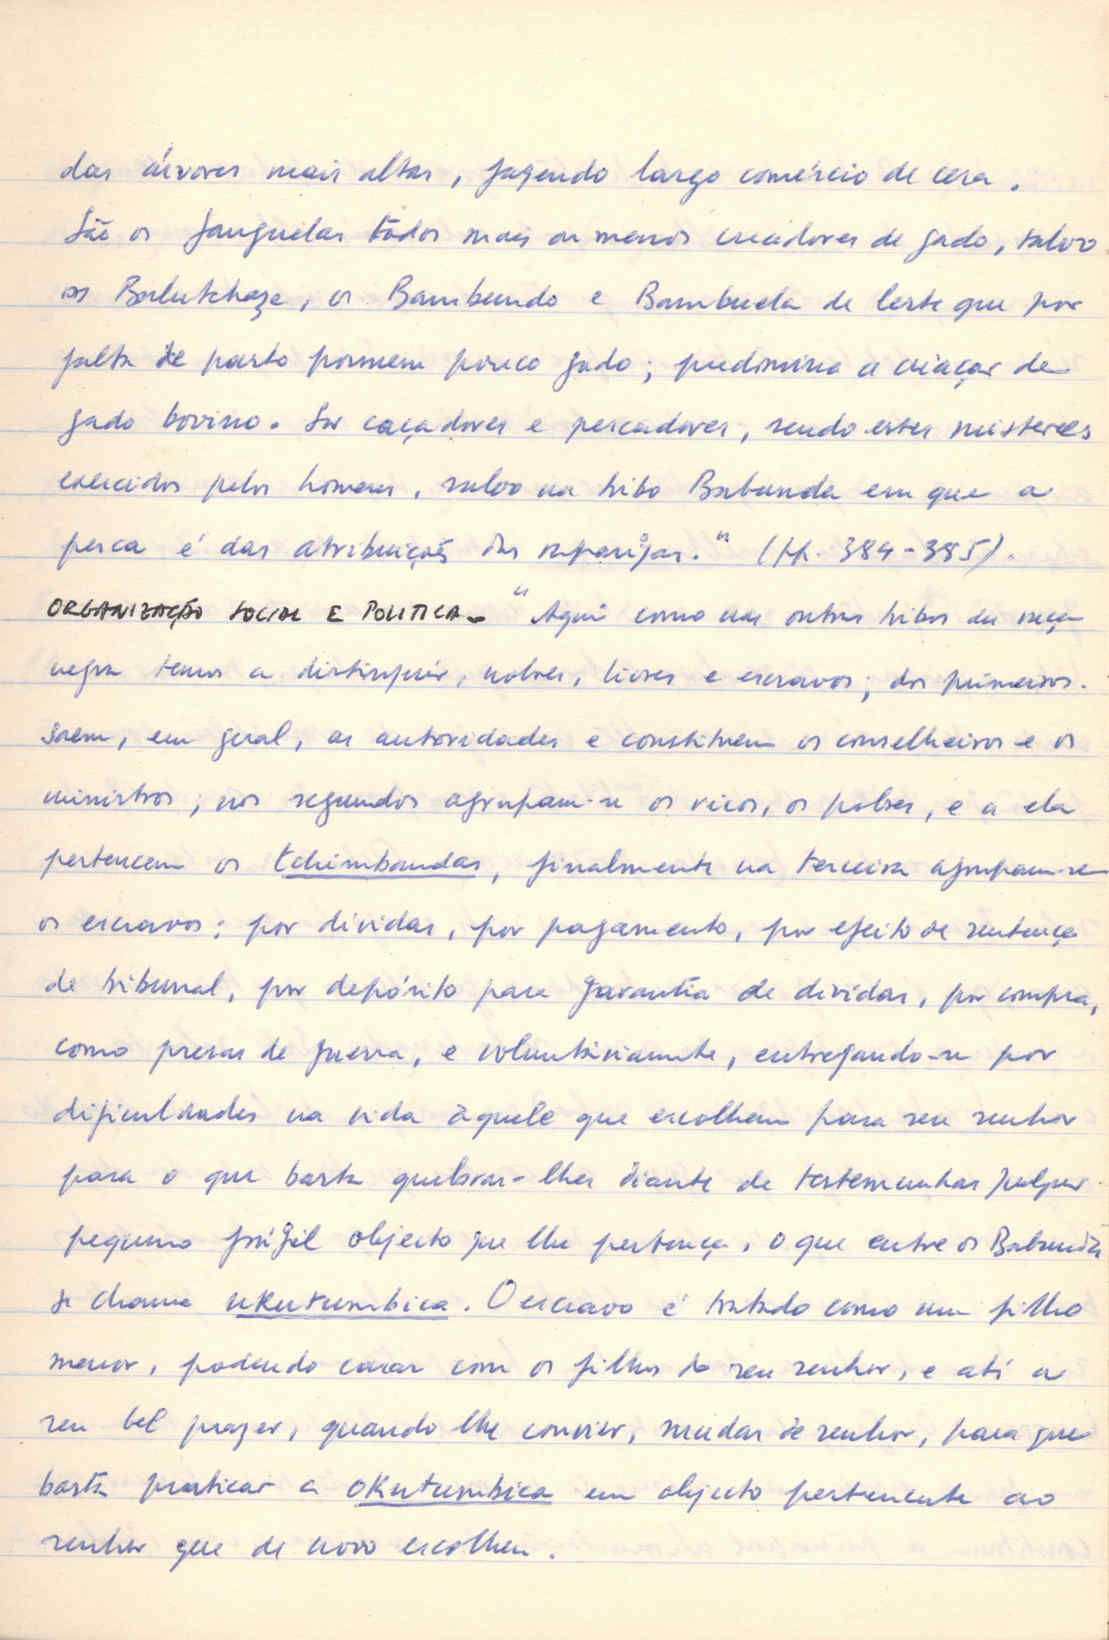 das árvores mais altas, fazendo largo comércio de cera.
São os Ganguelas todos mais ou menos creadores de gado, salvo
os Balutchaze, os Bambundo e Bambuela de leste que por
falta de pasto possuem pouco gado; predomina a criação de
gado bovino. São caçadores e pescadores, sendo estes misteres
exercidos pelos homens, salvo na tribo Babunda em que a
pesca é das atribuições das raparigas." (pp. 384-385).
ORGANIZAÇÃO SOCIAL E POLITICA - "Aqui como nas outras tribos da raça
negra temos a distinguir, nobres, livres e escravos; dos primeiros
saem, em geral, as autoridades e constituem os conselheiros e os
ministros; nos segundos agrupam-se os ricos, os pobres, e a ela
pertencem os tchimbandas, finalmente na terceira agrupam-se
os escravos: por dívidas, por pagamento, por efeito de sentença
de tribunal, por depósito para garantia de dívidas, por compra,
como presas de guerra, e voluntàriamente, entregando-se por
dificuldades na vida àquele que escolhem para seu senhor
para o que basta quebrar-lhes diante de testemunhas qualquer
pequeno frágil objecto que lhe pertença, o que entre os
se chama ukutumbica. O escravo é tratado como um filho
menor, podendo casar com os filhos do seu senhor, e até a
seu bel prazer, quando lhe convier, mudar de senhor, para que
basta praticar a okutumbica em objecto pertencente ao
senhor que de novo escolheu.